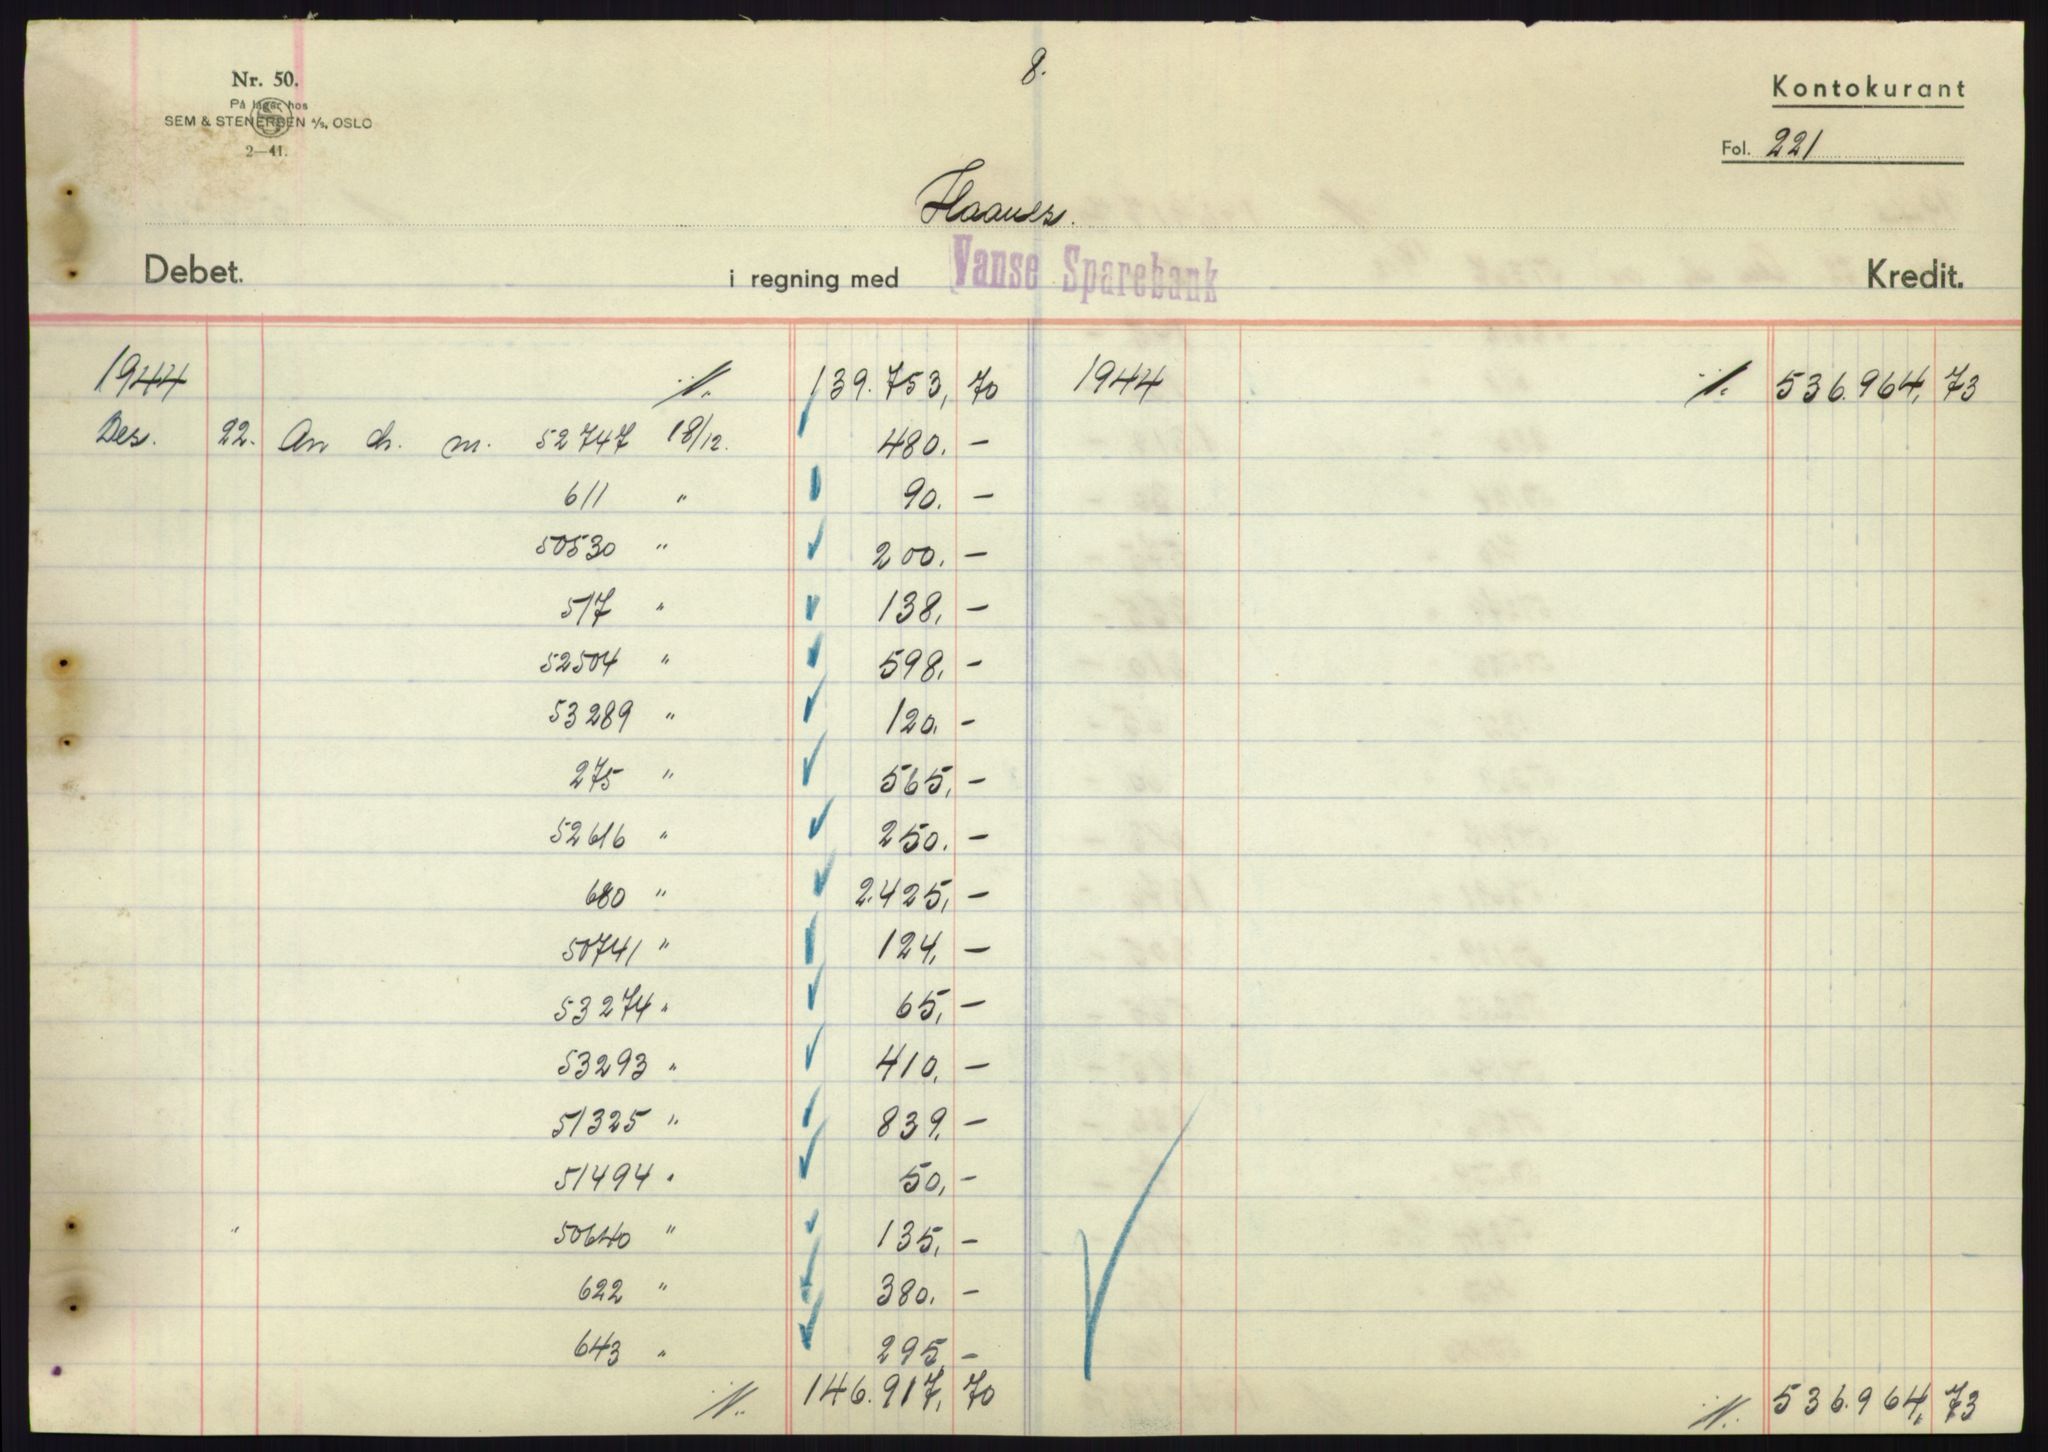 8.
Nr. 50.
På lager hos
SEM & STENERSEN A/S, OSLO
2—41.
Kontokurant
Fol. 221
Debet. i regning med Vanse Sparebank Kredit.
1944 ·/. 139.753, 70 1944 ·/. 536.964, 73
Des. 22. An ch. m. 52747 18/12. 480. —
611 " 90. —
50530 " 200. —
517 " 138, —
52504 " 598, —
53289 " 120. —
275 " 565, —
52616 " 250. —
680 " 2.425, —
50741 " 124, —
53274 " 65, —
53293 " 410, —
51325 " 839, —
51494 " 50, —
" 50640 " 135, —
622 " 380. —
643 " 295, —
·/. 146.917, 70 ·/. 536.964, 73